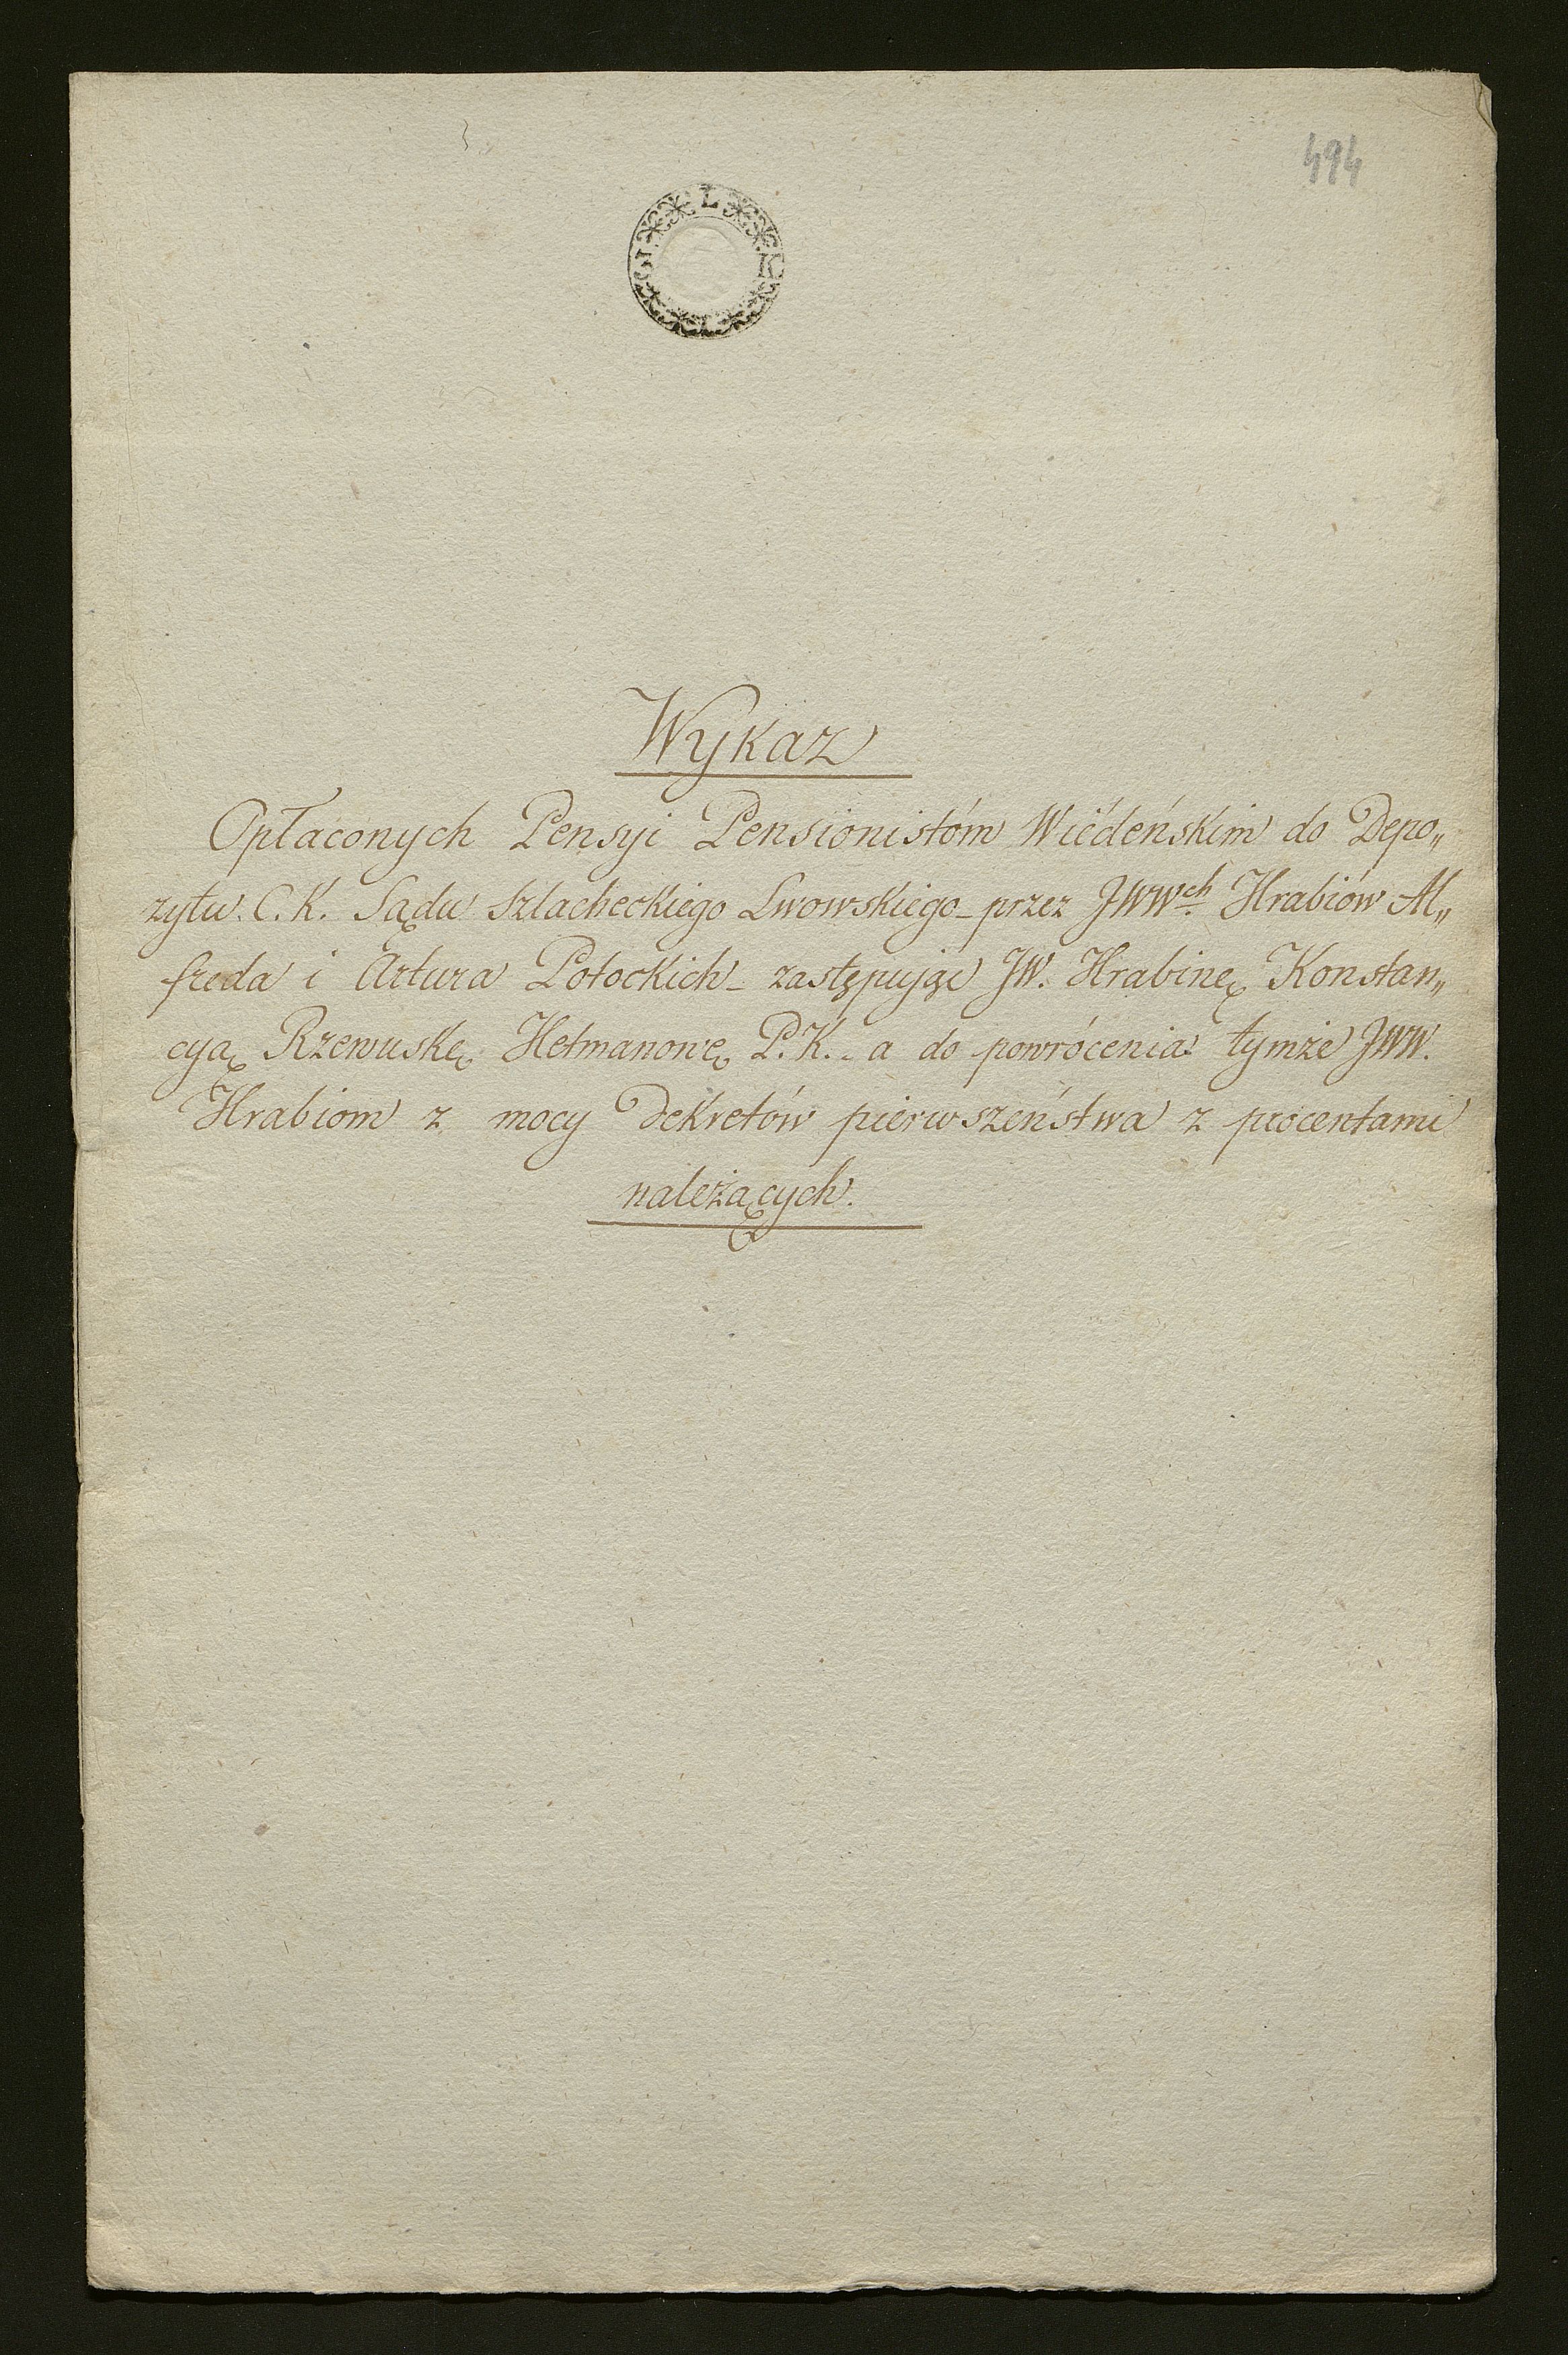 494
L
K
Wykaz
Opłaconych Pensyi Pensionistóm Wiédeńskim do Depo„
zytu C. K. Sądu Szlacheckiego Lwowskiego – przez JWWch. Hrabiów Al„
freda i Artura Potockich – zastępując JW. Hrabinę Konstan„
cyą Rzewuskę Hetmanowę P. K. – a do powrócenia tymże JWW.
Hrabiom z mocy Dekretów pierwszeństwa z procentami
należących.